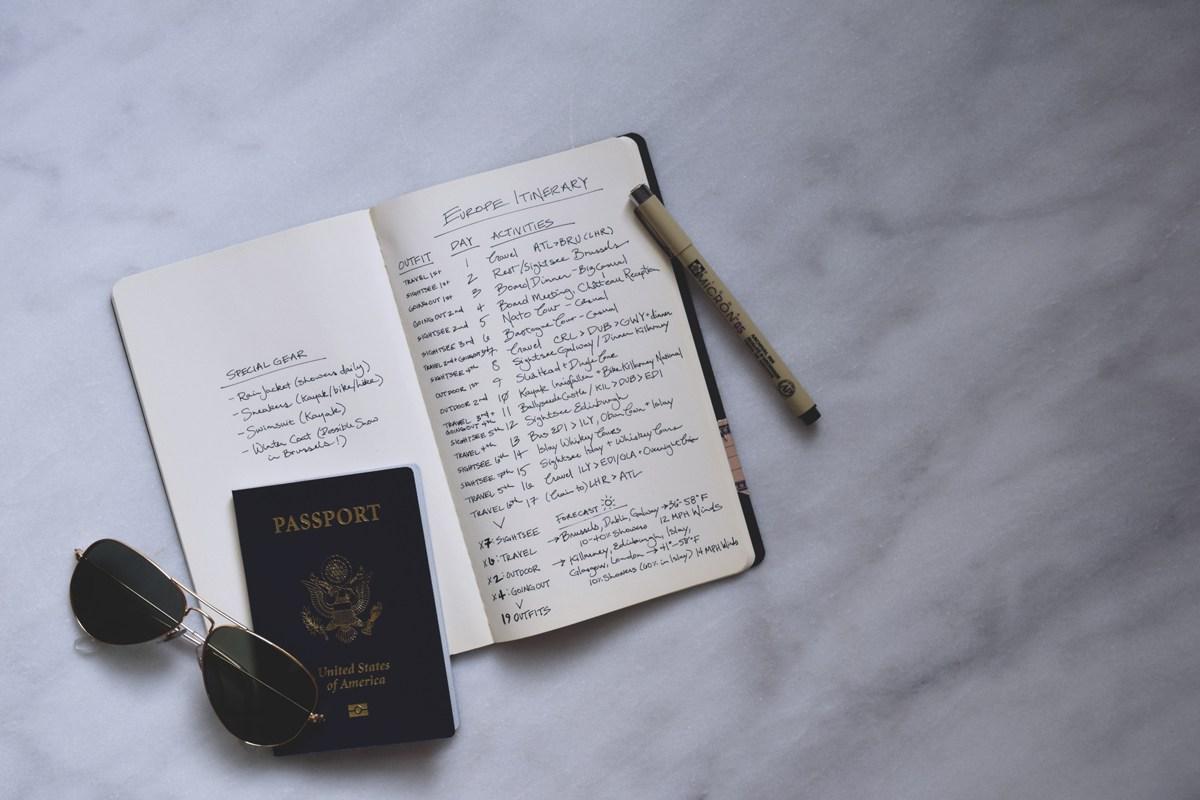 SPECIAL GEAR
- Rain Jacket (showers daily)
- Sneakers (Kayak/bike/hike)
- Swimsuit (Kayak)
- Winter Coat (Possible Snow
in Brussels!)
EUROPE ITINERARY
OUTFIT DAY ACTIVITIES
TRAVEL 1st 1 Travel ATL>BRU (LHR)
SIGHTSEE 1st 2 Rest/Sightsee Brussels
GOING OUT 1st 3 Board Dinner - Big Casual
GOING OUT 2nd 4 Board Meeting, Château Reception
SIGHTSEE 2nd 5 Nato Tour - Casual
SIGHTSEE 3rd 6 Bastogne Tour - Casual
TRAVEL 2nd + GOING OUT 3rd 7 Travel CRL > DUB > GWY + dinner
SIGHTSEE 4th 8 Sightsee Galway / Dinner Killarney
OUTDOOR 1st 9 Slea Head + Dingle Tour
OUTDOOR 2nd 10 Kayak Innisfallen + Bike Killarney National
TRAVEL 3rd + GOING OUT 4th 11 Ballyseede Castle / KIL > DUB > EDI
SIGHTSEE 5th 12 Sightsee Edinburgh
TRAVEL 4th 13 Bus EDI > ILY, Oban Town + Islay
SIGHTSEE 6th 14 Islay Whiskey Tours
SIGHTSEE 7th 15 Sightsee Islay + Whiskey Tours
TRAVEL 5th 16 Travel ILY > EDI/GLA + Overnight
TRAVEL 6th 17 (train to) LHR > ATL
x7: SIGHTSEE
x6: TRAVEL
x2: OUTDOOR
x4: GOING OUT
19 OUTFITS
FORECAST
→ Brussels, Dublin, Galway → 36-58°F
10-40% showers 12 MPH Winds
→ Killarney, Edinburgh, Islay,
Glasgow, London → 41-58°F
10% showers (60% in Islay) 14 MPH Winds
MICRON 05
PASSPORT
United States
of America